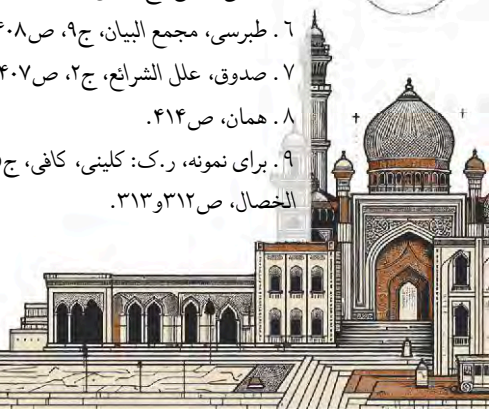 ۶. طبرسی، مجمع البیان، ج۹، ص۴۰۸
۷. صدوق، علل الشرائع، ج۲، ص۴۰۷
۸. همان، ص۴۱۴.
۹. برای نمونه، ر.ک: کلینی، کافی،
الخصال، ص۳۱۲و۳۱۳.